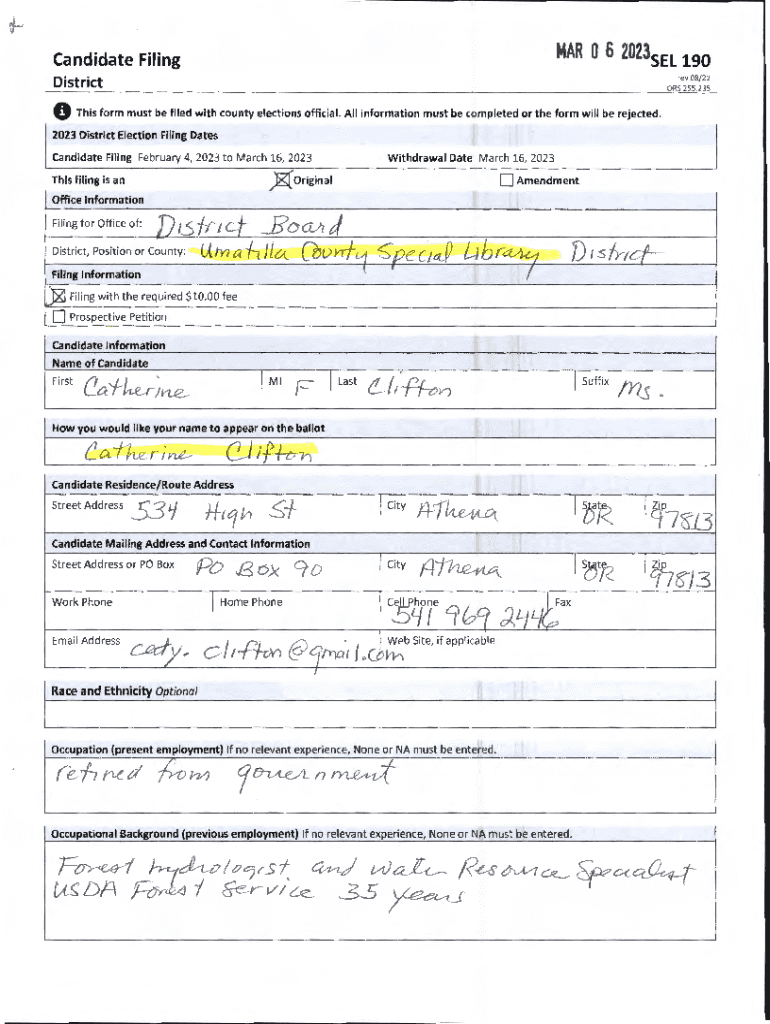 Candidate Filing
District
MAR 06 2023
SEL 190
rev 08/22
ORS 255.235
This form must be filed with county elections official. All information must be completed or the form will be rejected.
2023 District Election Filing Dates
Candidate Filing February 4, 2023 to March 16, 2023 Withdrawal Date March 16, 2023
This filing is an Original Amendment
Office Information
Filing for Office of: District Board
District, Position or County: Umatilla County Special Library District
Filing Information
Filing with the required $10.00 fee
Prospective Petition
Candidate Information
Name of Candidate
First Catherine MI F Last Clifton Suffix Ms.
How you would like your name to appear on the ballot
Catherine Clifton
Candidate Residence/Route Address
Street Address 534 High St City Athena State OR Zip 97813
Candidate Mailing Address and Contact Information
Street Address or PO Box PO Box 90 City Athena State OR Zip 97813
Work Phone Home Phone Cell Phone 541 969 2446 Fax
Email Address caty.clifton@gmail.com Web Site, if applicable
Race and Ethnicity Optional
Occupation (present employment) If no relevant experience, None or NA must be entered.
retired from government
Occupational Background (previous employment) If no relevant experience, None or NA must be entered.
Forest hydrologist and Water Resource Specialist
USDA Forest Service 35 years